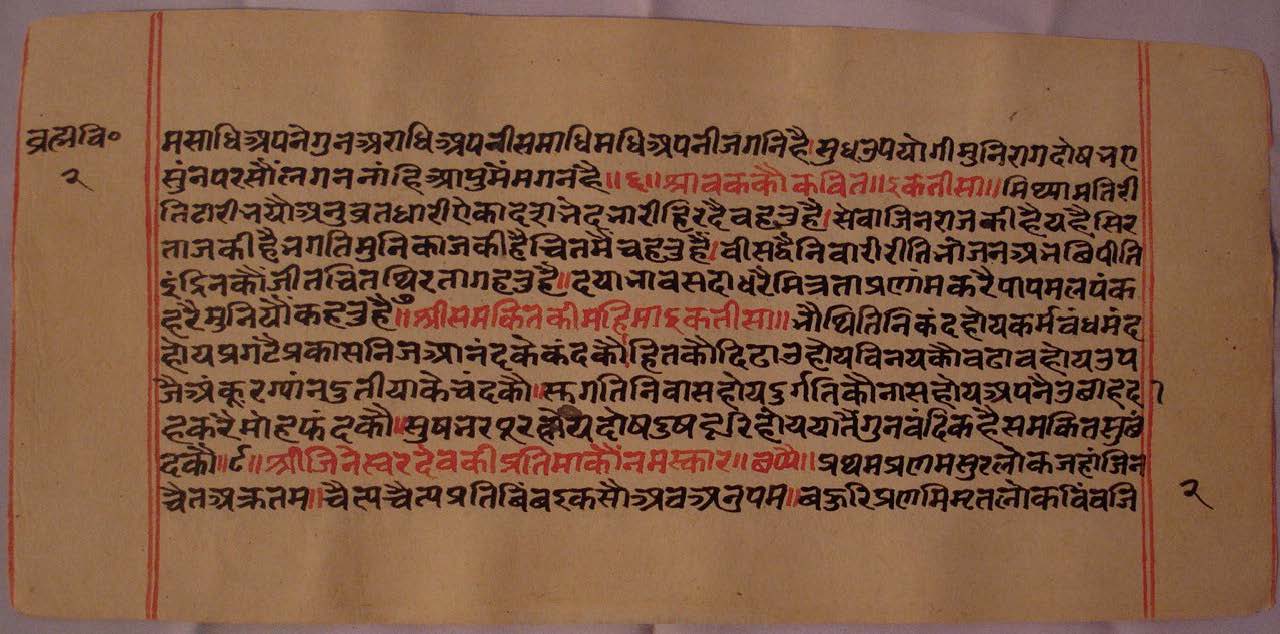 ब्रह्मवि०
२
मसाधिअपनेगुनअराधिअपनीसमाधिमधिअपनीजगनिहै।सुधउपयोगीमुनिरागदोषभए
सुंनपरसौंलगननांहिआपुमैंमगनंहै॥६॥श्रावककौकवित॥इकतीसा॥मिथ्यामतिरी
तिटारीभयौअनुव्रतधारीऐकादशभेदभारीहिरदैवहतुहै।सेवाजिनराजकीहैयहैसिर
ताजकीहैभगतिमुनिकाजकीहैचितमैंचहतुहै।वीसद्वैनिवारीरीतिभोजनअभषिपीति
इंद्रिनकौंजीतचितथिरतागहतुहै॥दयाभावसदाधरैमित्रताप्रणांमकरैपापमलपंक
हरैमुनियौंकहतुहै७॥श्रीसमकितकीमहिमाइकतीसा॥भौथितिनिकंदहोयकर्मबंधमंद
होयप्रगटैप्रकासनिजआनंदकेकंदकौ।हितकौदिढावहोयविनयकौवढावहोयउप
जैअंकूरग्यांनदुतीयाकेचंदकौ॥स्रुगतिनिवासहोयदुर्गतिकौनासहोयअपनैउबाहदा
हकरैमोहफंदकौ॥सुषभरपूरहोयदोषदुषदूरिहोययातैंगुनवंदिकहैसमकितसुछं
दकौ॥८॥श्रीजिनेस्वरदेवकीप्रतिमाकौंनमस्कार॥छप्पै॥प्रथमप्रणमसुरलोकजहांजिन
चैतअक्रतम॥चैत्यचैत्यप्रतिबिंबइकसौअवअनुपम॥बहुरिप्रणमिमृतलोकविंवजि
२